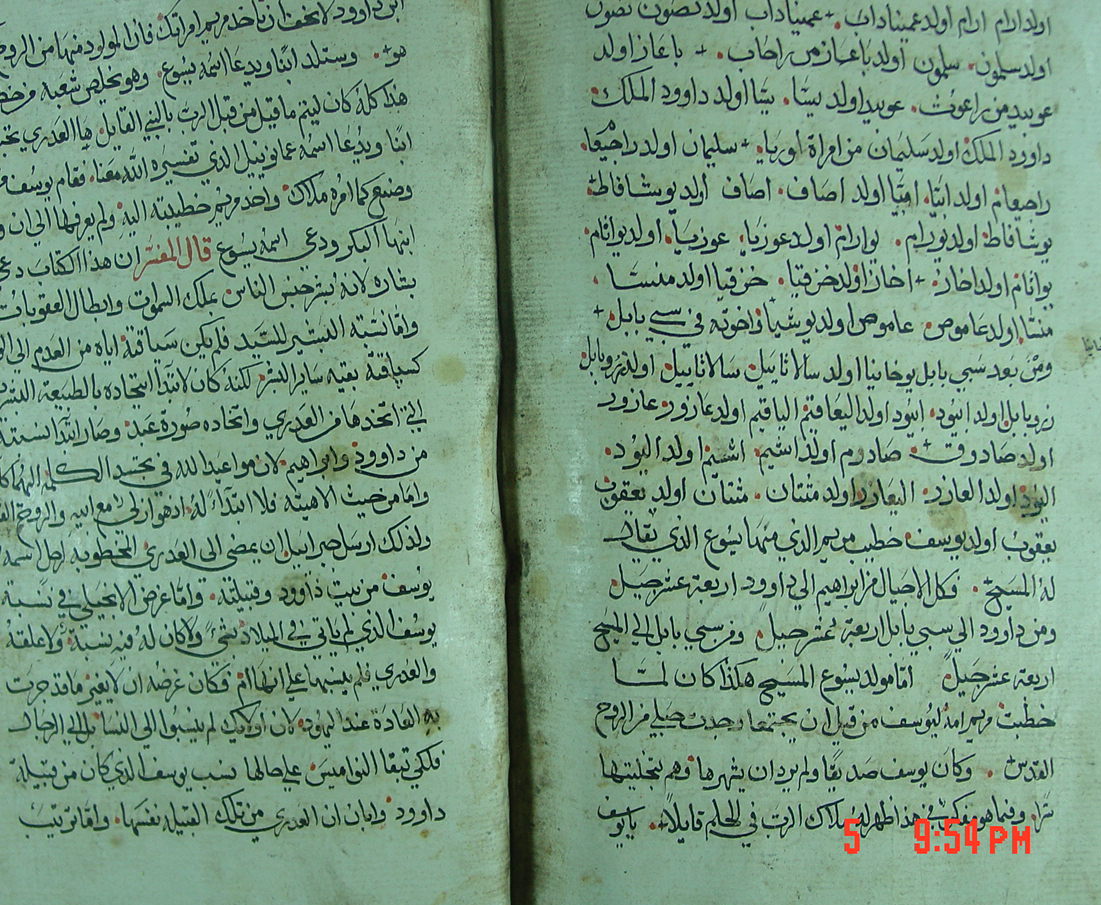 اولد ارام ارام اولد عميناداب + عميناداب اولد نصون نصون
اولد سلمون سلمون اولد باعاز من راحاب + باعاز اولد
عوبيد من راعوث عوبيد اولد يسا يسا اولد داوود الملك
داوود الملك اولد سليمان من امراة اوريا + سليمان اولد راحبعام
راحبعام اولد ابيا ابيا اولد اصاف اصاف اولد يوشافاط
يوشافاط اولد يورام يورام اولد عوزيا عوزيا اولد يواثام
يواثام اولد احاز + احاز اولد حزقيا حزقيا اولد منسا
منسا اولد عاموص عاموص اولد يوشيا واخوته في سبي بابل +
ومن بعد سبي بابل يوخانيا اولد سالاثاييل سالاثاييل اولد زروبابل
زروبابل اولد ابيود ابيود اولد الياقيم الياقيم اولد عازور عازور
اولد صادوق + صادوم اولد اشيم اشيم اولد اليود
اليود اولد العازر اليعازر اولد متثان متثان اولد يعقوب
يعقوب اولد يوسف خطيب مريم الذي منها يسوع الذي يقال
له المسيح فكل الاجيال من ابراهيم الي داوود اربعة عشر جيل
ومن داوود الي سبي بابل اربعة عشر جيل ومن سبي بابل الي المسيح
اربعة عشر جيل اما مولد يسوع المسيح هكذا كان لما
خطبت مريم امه ليوسف من قبل ان يجتمعا وجدت حبلي من الروح
القدس وكان يوسف صديقا ولم يرد ان يشهرها وهم بتخليتها
سرا وفيما هو مفكر في هذا ظهر له ملاك الرب في الحلم قايلا + يا يوسف
ابن داوود لا تخف ان تاخذ مريم امراتك فان المولود منها من الروح
هو + وستلد ابنا ويدعا اسمه يسوع وهو يخلص شعبه من
هذا كله كان ليتم ما قيل من قبل الرب بالنبي القايل ها العذري
ابنا ويدعا اسمه عمانوييل الذي تفسيره الله معنا فقام يوسف
وصنع كما امره ملاك واخذ مريم خطيبته اليه ولم يعرفها الي ان
ابنها البكر ودعي اسمه يسوع قال المفسر ان هذا الكتاب دعي
بشاره لانه يبشر جنس الناس بملك السموات وابطال العقوبات
واما نسبة التبشير للسيد فلم يكن سياقة اياه من العدم الي
كسياقة بقيه ساير البشر لكنه كان لابتدا اتحاده بالطبيعة
التي اتخذها من العذري واتحاده صورة عبد وصار ابتدا نسبته
من داوود وابراهيم لان مواعيد الله في تجسد الكلمه
واما من حيث الاهيته فلا ابتدا له اذ هو ازلي مع ابيه والروح
ولذلك ارسل جبراييل ان يمضي الي العذري المخطوبه لرجل اسمه
يوسف من بيت داوود وقبيلته واما غرض الانجيلي في نسبة
يوسف الذي لم ياتي في الميلاد بشي ولا كان له فيه نسبة ولا علقة
والعذري فلم ينسبها علي انها ام فكان غرضه ان لا يغير ما قد جرت
به العادة عند اليهود لان اولايك لم ينسبوا الي النسا بل الي الرجال
فلكي تبقا النواميس علي حالها نسب يوسف الذي كان من قبيلة
داوود وابان ان العذري من تلك القبيله نفسها واما ترتيب
5 9:54 PM